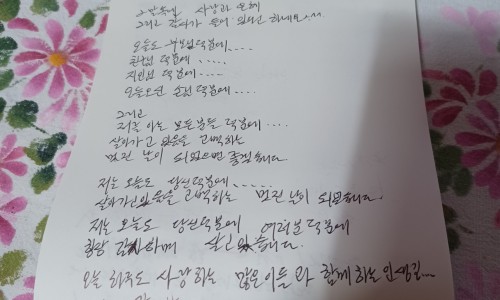 그 만큼에 사랑과 은혜
그리고 감사가 들어 있다고 하네요^^
오늘도 부모님 덕분에....
친구님 덕분에.....
지인님 덕분에....
오늘오신 손님 덕분에....
그리고
저를 아는 모든분들 덕분에....
살아가고 있음을 고백하는
멋진 날이 되었으면 좋겠습니다
저는 오늘도 당신덕분에......
살아가고 있음을 고백하는 멋진 날이 되렵니다.
저는 오늘도 당신덕분에 여러분 덕분에
항상 감사하며 살고 있습니다.
오늘 하루도 사랑하는 많은이들과 함께하는 인생길...